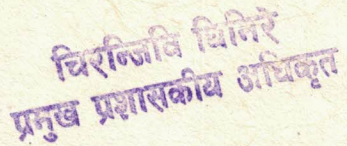 चिरन्जिवि घिमिरे
प्रमुख प्रशासकीय अधिकृत